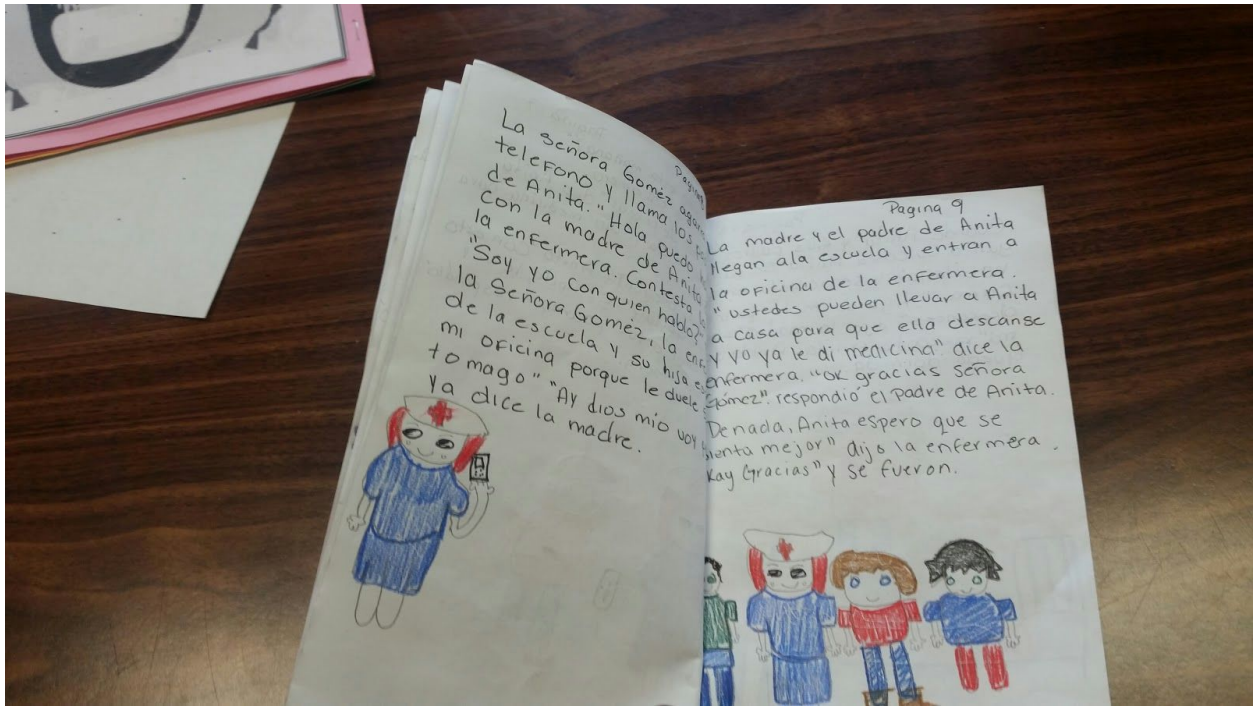 Pagina
La señora Goméz
telefono y llama los
de Anita. "Hola puedo
con la madre de Anita
la enfermera. Contesta
"Soy yo con quien hablo?"
la Señora Goméz, la
de la escuela y su hija
mi oficina porque le duele
tomago" "Ay dios mio voy
ya dice la madre.
Pagina 9
La madre y el padre de Anita
llegan ala escuela y entran a
la oficina de la enfermera.
"ustedes pueden llevar a Anita
a casa para que ella descanse
y yo ya le di medicina" dice la
enfermera. "OK gracias señora
Gómez". respondió el padre de Anita.
Denada, Anita espero que se
sienta mejor" dijo la enfermera.
Kay Gracias" y se fueron.